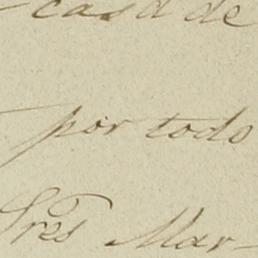 casa de
por todo
Sres Mar-